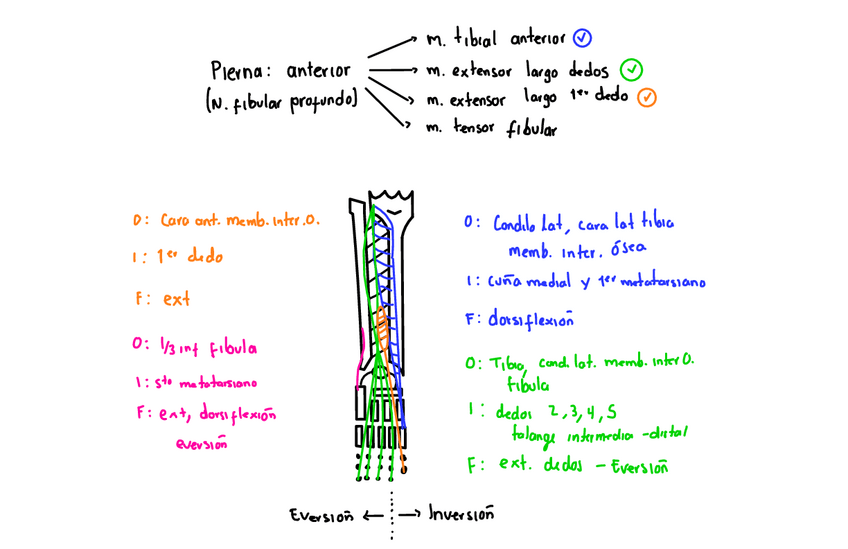 m. tibial anterior
Pierna: anterior
(N. fibular profundo)
m. extensor largo dedos
m. extensor largo 1er dedo
m. tensor fibular
O: Cara ant. memb. inter. O.
I: 1er dedo
F: ext
O: 1/3 inf fibula
I: 5to metatarsiano
F: ext, dorsiflexión
eversión
O: Condilo Lat, cara lat tibia
memb. inter. ósea
I: cuña medial y 1er metatarsiano
F: dorsiflexión
O: Tibia, cond. lat. memb. inter O.
fibula
I: dedos 2,3,4,5
falange intermedia - distal
F: ext. dedos - Eversión
Eversión
Inversión